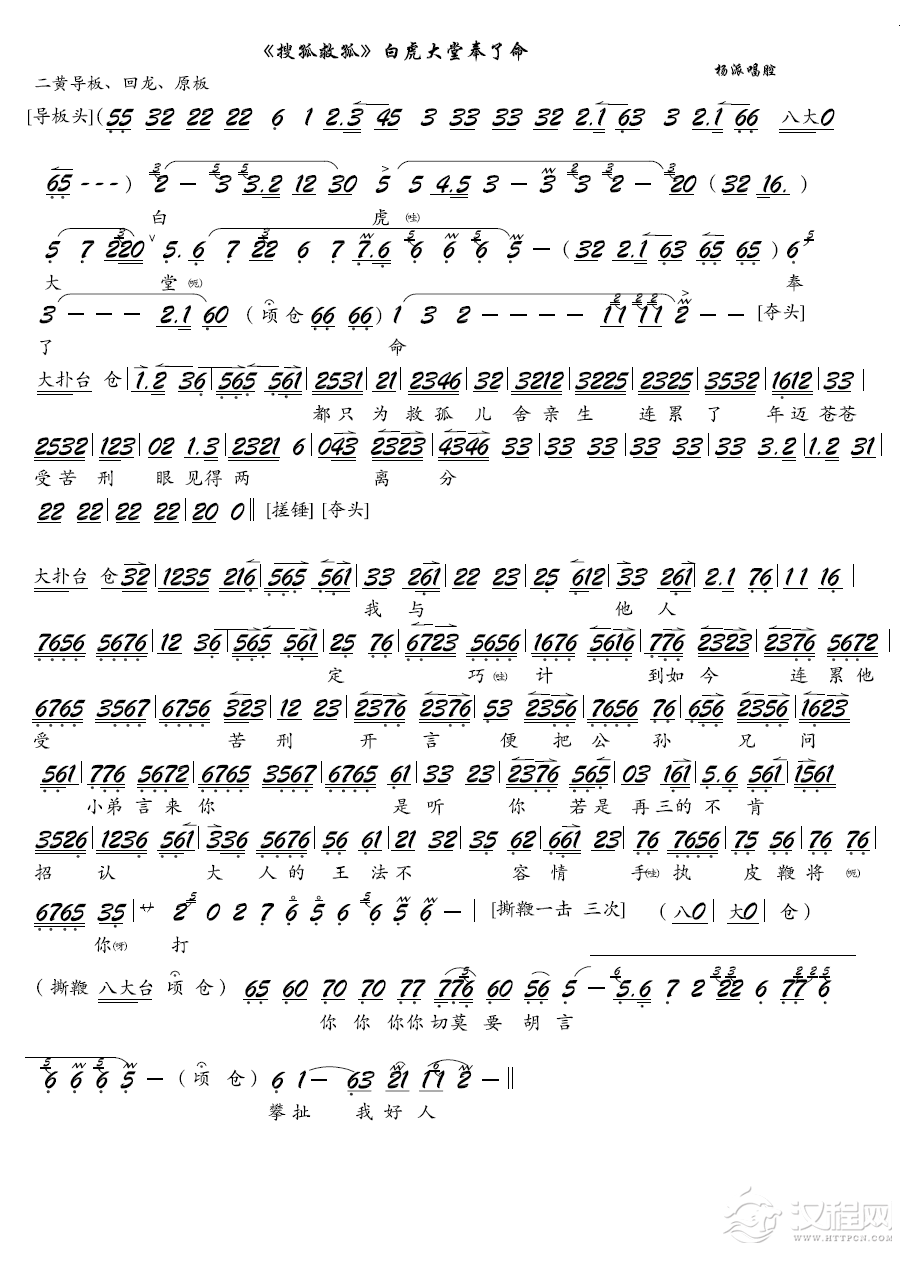 《搜孤救孤》白虎大堂奉了命
杨派唱腔
二黄导板、回龙、原板
[导板头](55 32 22 22 6 1 2.3 45 3 33 33 32 2.1 63 3 2.1 66 八大0
65 - - - ) 2 - 3 3.2 12 30 5 5 4.5 3 - 3 3 2 - 20 (32 16. )
白 虎(哇)
5 7 220 5. 6 7 22 6 7 7.6 6 6 6 5 - (32 2.1 63 65 65) 6
大 堂(呃) 奉
3 - - - 2.1 60 (顷仓 66 66) 1 3 2 - - - - 11 11 2 - - [夺头]
了 命
大扑台 仓|1.2 36|565 561|2531 21|2346 32|3212 3225|2325 3532|1612 33|
都只为救孤儿舍亲生 连累了 年迈苍苍
2532|123|02 1.3|2321 6|043 2323|4346 33|33 33|33 33|33 3.2|1.2 31|
受苦刑 眼见得两 离 分
22 22|22 22|20 0‖[搓锤][夺头]
大扑台 仓32|1235 216|565 561|33 261|22 23|25 612|33 261|2.1 76|11 16|
我与 他人
7656 5676|12 36|565 561|25 76|6723 5656|1676 5616|776 2323|2376 5672|
定 巧(哇)计 到如今 连累他
6765 3567|6756 323|12 23|2376 2376|53 2356|7656 76|656 2356|1623
受 苦刑 开言 便把公孙 兄问
561|776 5672|6765 3567|6765 61|33 23|2376 565|03 161|5.6 561|1561
小弟言来你 是听 你 若是再三的不肯
3526|1236 561|336 5676|56 61|21 32|35 62|661 23|76 7656|75 56|76 76|
招认 大人的王法不 容情 手(哇)执 皮鞭将(呃)
6765 35|サ 2 0 2 7 6 5 6 6 5 6 - |[撕鞭一击 三次] (八0|大0|仓)
你(呀) 打
(撕鞭 八大台 顷 仓) 65 60 70 70 77 776 60 56 5 - 5.6 7 2 22 6 77 6
你 你 你你切莫要胡言
6 6 6 5 - (顷 仓) 6 1- 63 21 11 2 -‖
攀扯 我好人
汉程网
WWW.HTTPCN.COM